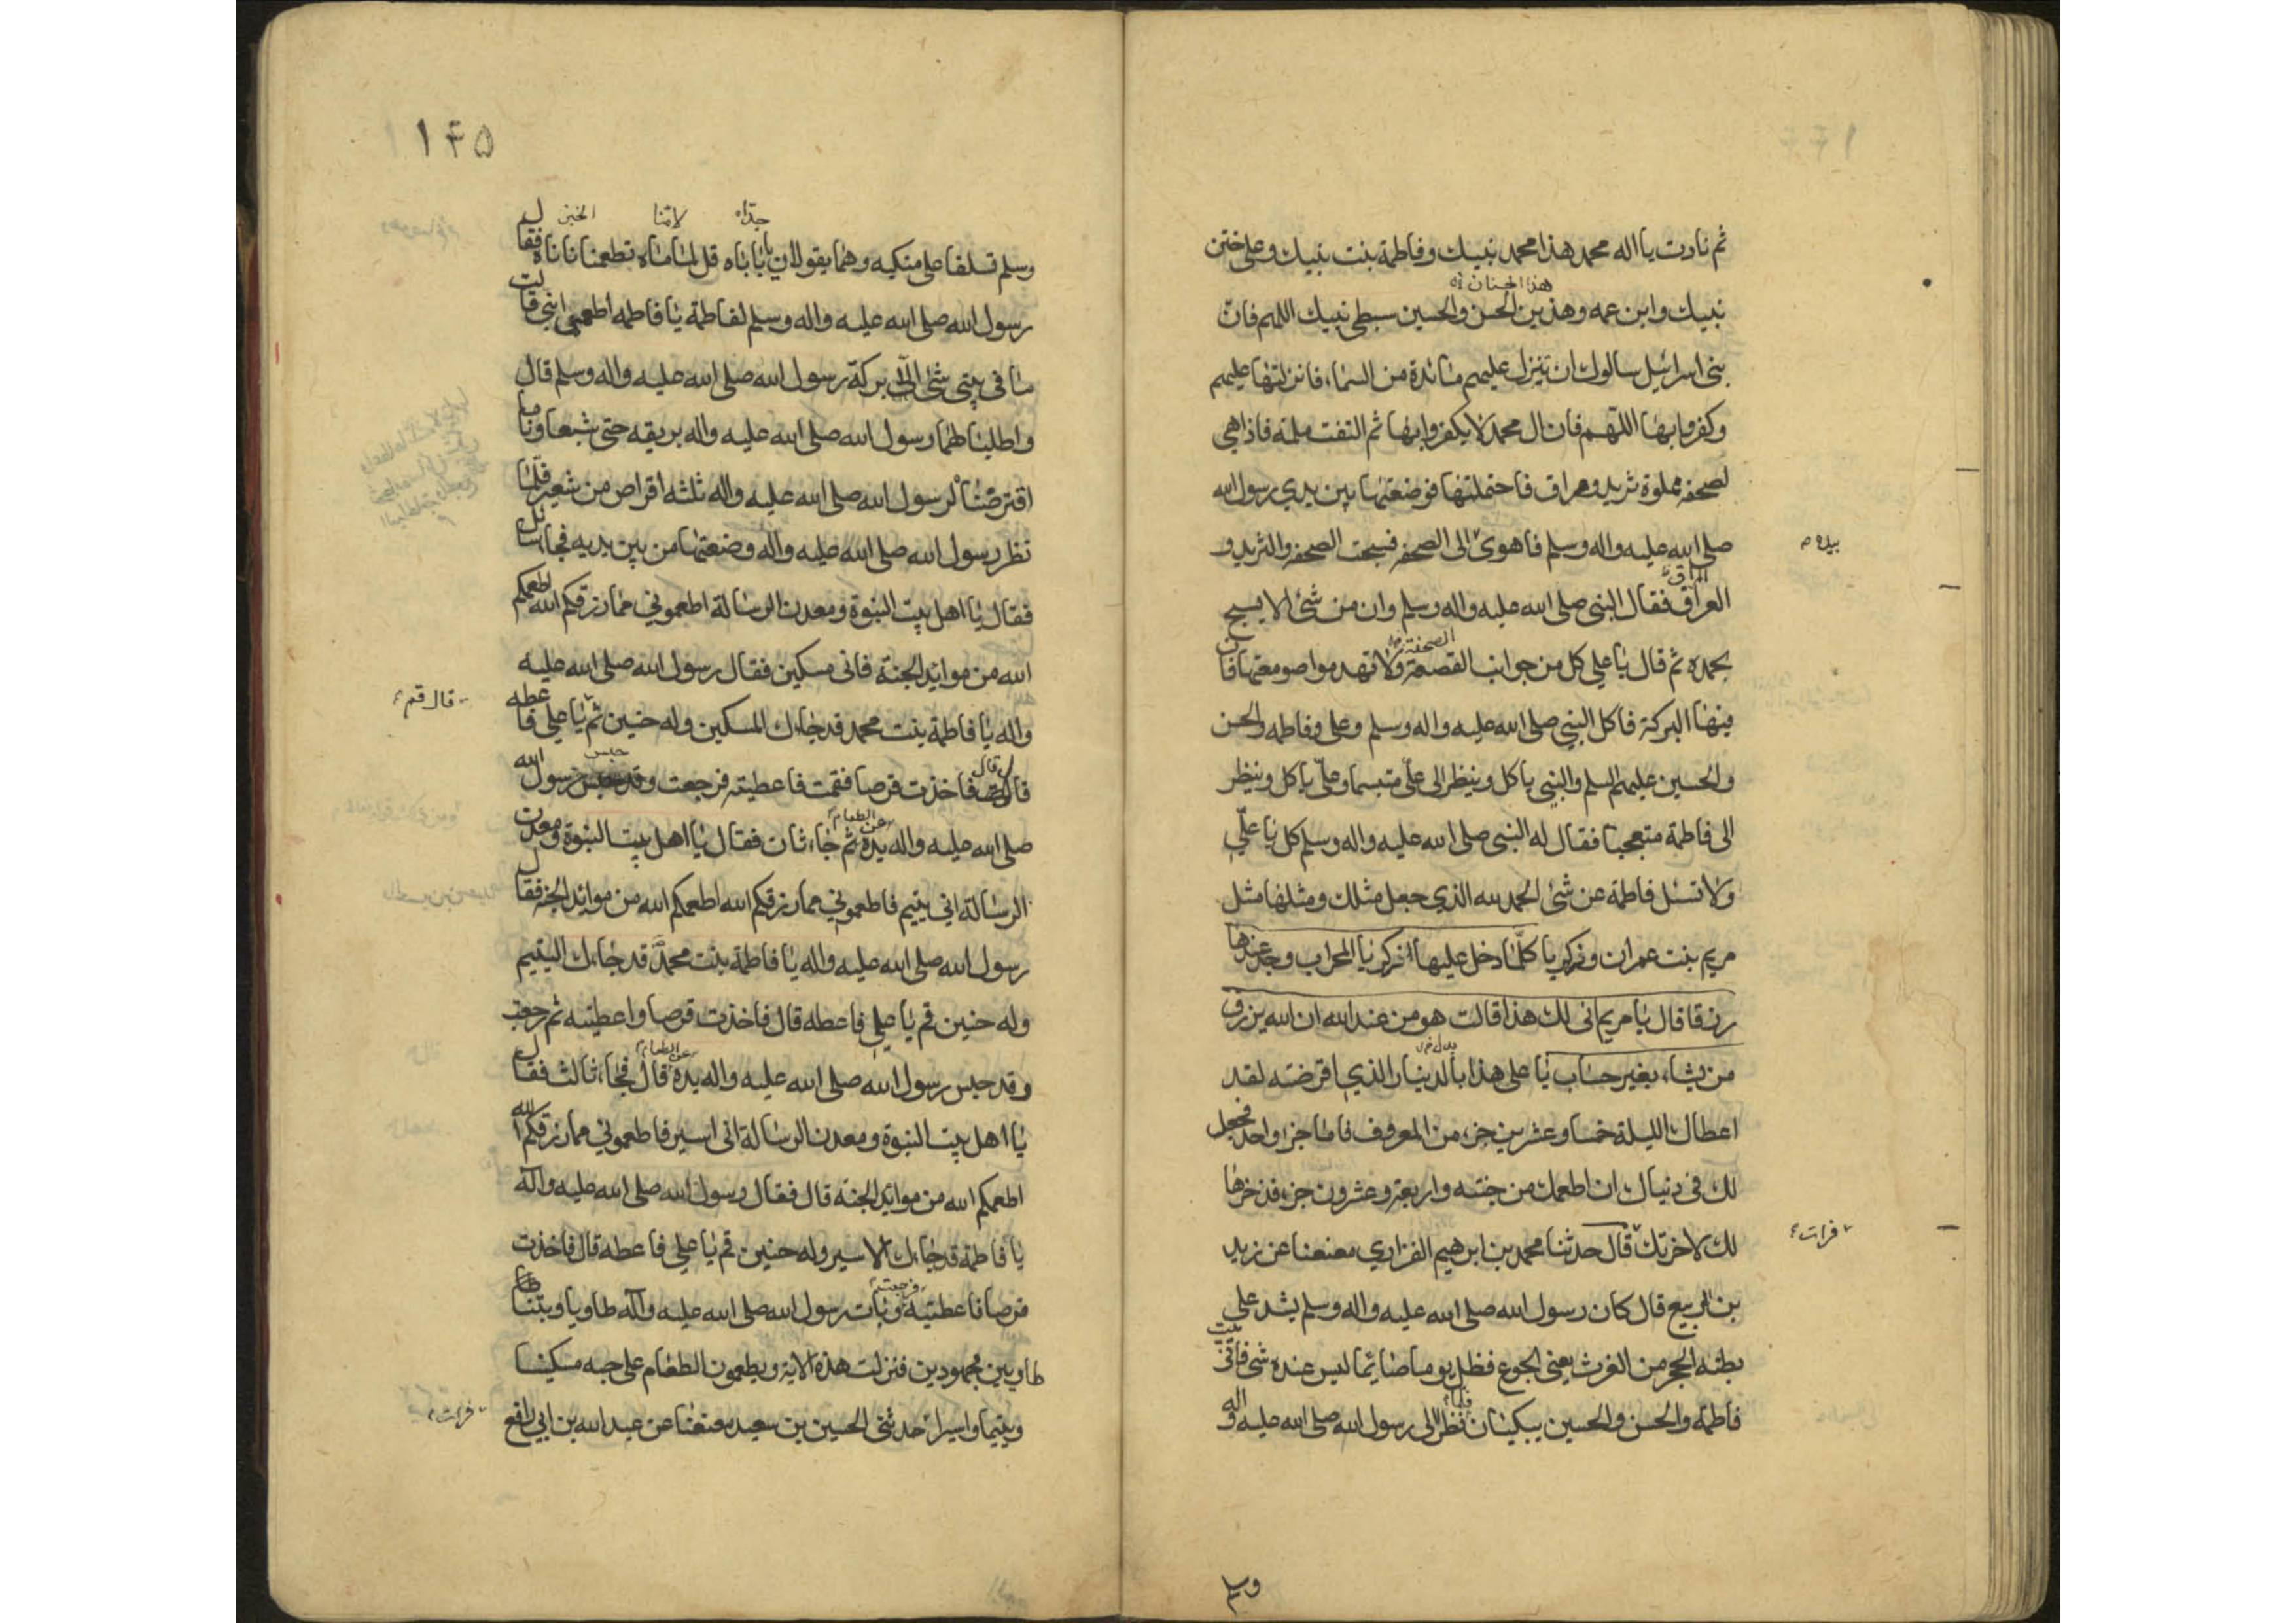 ثم نادت يا اله محمد هذا محمد نبيك وفاطمة بنت نبيك وعلي ختن
هذا الحسنان
نبيك وابن عمه وهذين الحسن والحسين سبطي نبيك اللهم فان
بنى اسرائيل سالوك ان تنزل عليهم مائدة من السماء فانزلتها عليهم
وكفروا بها اللهم فان ال محمد لا يكفروا بها ثم التفت مسلمة فاذا هي
لصحفه مملوة ثريد وعراق فاحتملتها فوضعتها بين يدي رسول الله
صلى الله عليه واله وسلم فاهوى الى الصحفه فسبحت الصحفه والثريد و
بيده
العراق فقال النبي صلى الله عليه واله وسلم وان من شئ الا يسبح
الصحفة
بحمده ثم قال يا علي كل من جوانب القصعة ولا تهدموا صومعتها فان
فيها البركة فاكل النبي صلى الله عليه واله وسلم وعلي وفاطمه والحسن
والحسين عليهم السلم والنبي ياكل وينظر الى علي متبسما وعلي ياكل وينظر
الى فاطمة متعجبا فقال له النبى صلى الله عليه واله وسلم كل يا علي
ولا تسئل فاطمة عن شئ الحمد لله الذي جعل مثلك ومثلها مثل
مريم بنت عمران وزكريا كلما دخل عليها زكريا المحراب وجد عندها
رزقا قال يا مريم انى لك هذا قالت هو من عند الله ان الله يرزق
من يشاء بغير حساب يا علي هذا بالدينار الذي اقرضته لقد
اعطاك الليلة خمسا وعشرين جزء من المعروف فاما جزا واحد فجعل
لك في دنياك ان اطعمك من جنته واربعة وعشرون جزء قد ذخرها
لك لاخرتك قال حدثنا محمد بن ابرهيم الفزاري معنعنا عن زيد
فرات
بن الربيع قال كان رسول الله صلى الله عليه واله وسلم يشد على
بطنه الحجر من الغرث يعني الجوع فظل يوما صائما ليس عنده شئ فاتى بيت
فاطمة والحسن والحسين يبكيان فلما نظرا الى رسول الله صلى الله عليه واله و
وسلم
١٤٥
جداه لامنا الخبز
وسلم تسلقا على منكبيه وهما يقولان يا باباه قل لماماه تطعمنا ناناه فقال
رسول الله صلى الله عليه واله وسلم لفاطمة يا فاطمه اطعمي ابني قالت
ما في بيتي شئ الا بركة رسول الله صلى الله عليه واله وسلم قال
رسول الله صلى الله عليه واله بريقه حتى شبعا وناما
اقترضنا لرسول الله صلى الله عليه واله ثلثه اقراص من شعير فلما
نظر رسول الله صلى الله عليه واله وضعتها من بين يديه فجا سائل
فقال يا اهل بيت النبوة ومعدن الرسالة اطعموني مما رزقكم الله اطعمكم
الله من موائد الجنة فانى مسكين فقال رسول الله صلى الله عليه
واله يا فاطمة بنت محمد قد جاءك المسكين وله حنين ثم يا علي فاعطه
قال قم
فاخذت قرصا فقمت فاعطيته فرجعت وقد حبس رسول الله
صلى الله عليه واله يده ثم جاء ثان فقال يا اهل بيت النبوة ومعدن
عن الطعام
الرسالة اني يتيم فاطعموني مما رزقكم الله اطعمكم الله من موائد الجنة فقال
رسول الله صلى الله عليه واله يا فاطمة بنت محمد قد جاءك اليتيم
وله حنين قم يا علي فاعطه قال فاخذت قرصا واعطيته ثم رجعت
وقد حبس رسول الله صلى الله عليه واله يده قال فجاء ثالث فقال
عن الطعام
يا اهل بيت النبوة ومعدن الرسالة انى اسير فاطعموني مما رزقكم الله
اطعمكم الله من موائد الجنة قال فقال رسول الله صلى الله عليه وآله
يا فاطمة قد جاءك الاسير وله حنين قم يا علي فاعطه قال فاخذت
قرصا فاعطيته وبات رسول الله صلى الله عليه وآله طاويا وبتنا
فرجعت
طاويين مجهودين فنزلت هذه الاية ويطعمون الطعام على حبه مسكينا
ويتيما واسيرا حدثنى الحسين بن سعيد معنعنا عن عبد الله بن ابي رافع
فرات